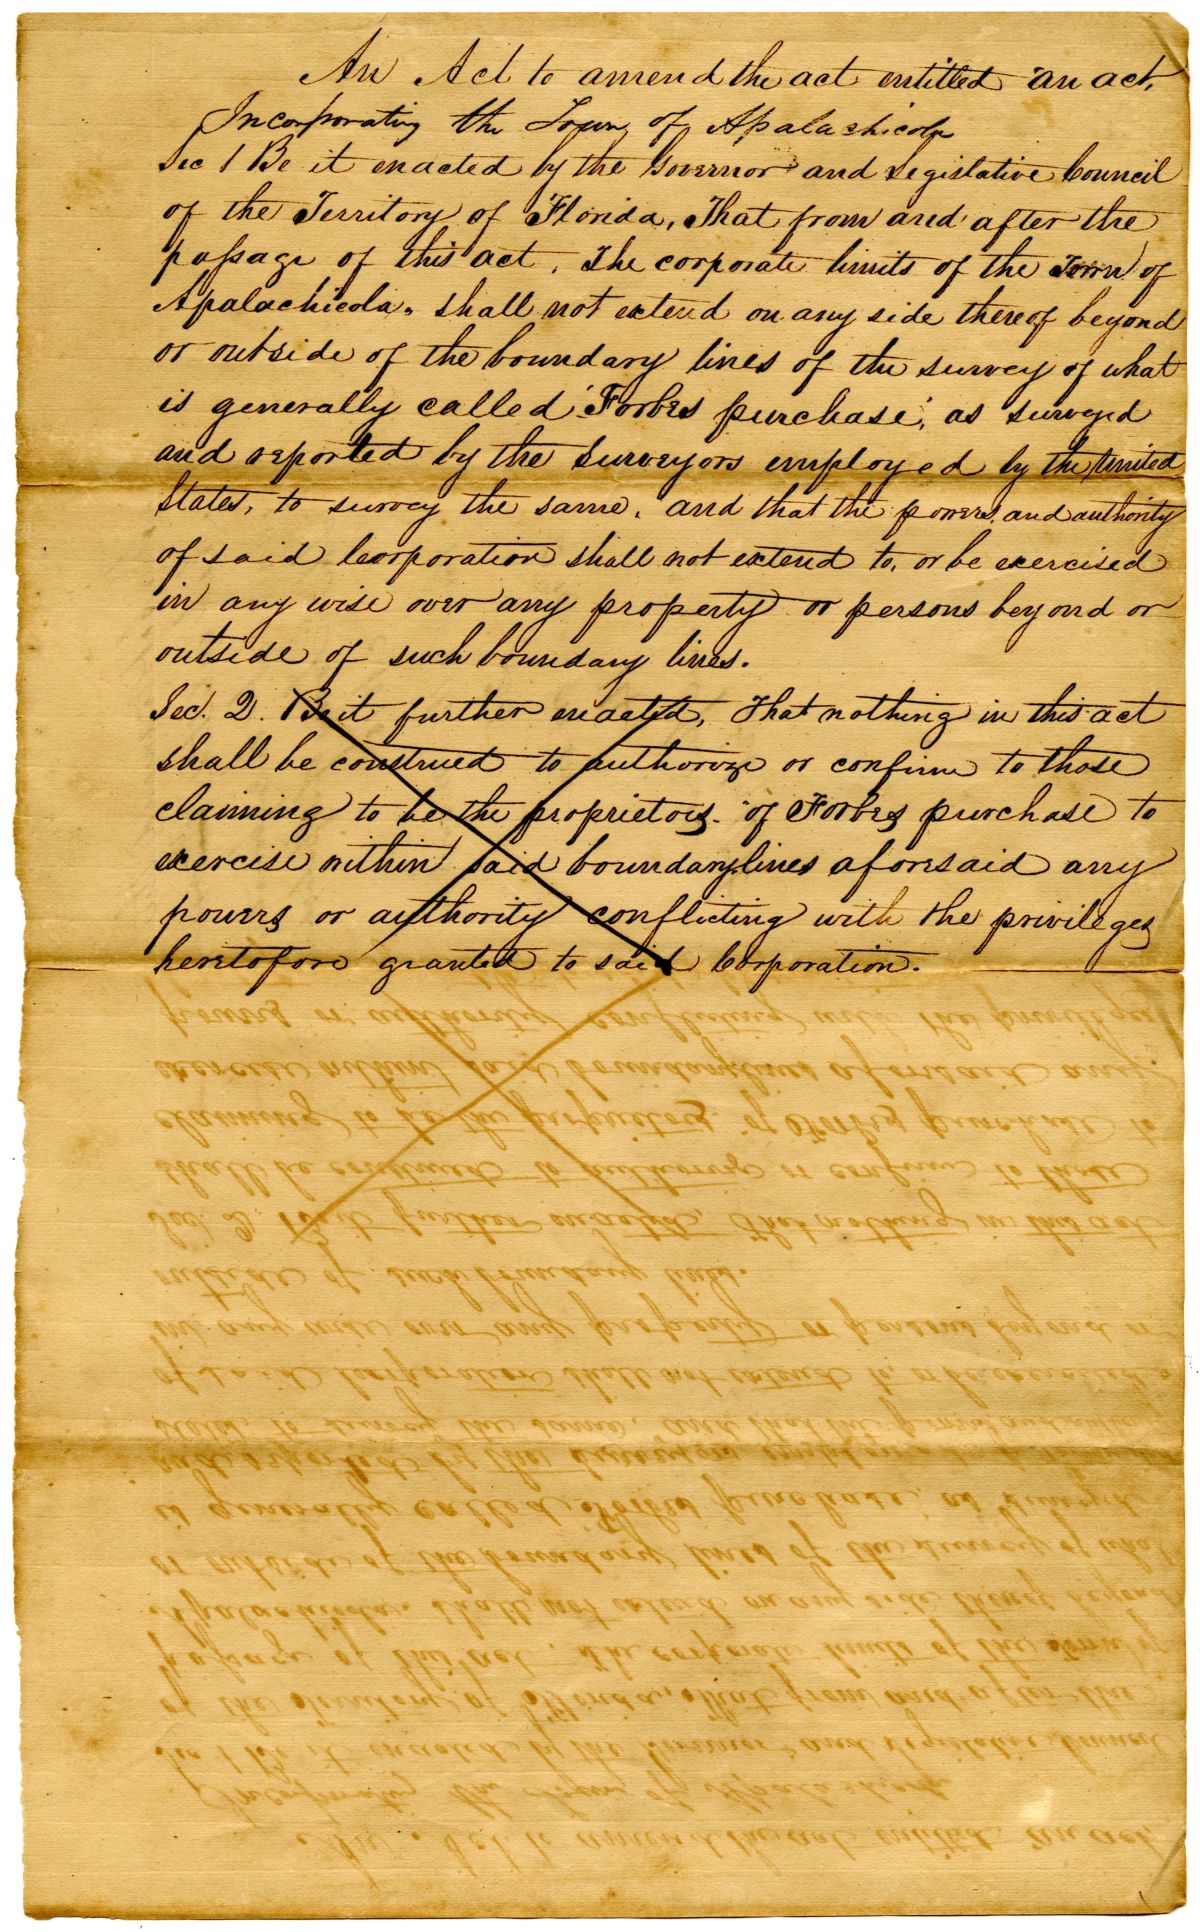 An Act to amend the act entitled "an act,
Incorporating the Town of Apalachicola
Sec 1 Be it enacted by the Governor and Legislative Council
of the Territory of Florida, That from and after the
passage of this act, The corporate limits of the Town of
Apalachicola, shall not extend on any side thereof beyond
or outside of the boundary lines of the survey of what
is generally called 'Forbes purchase', as surveyed
and reported by the Surveyors employed by the United
States, to survey the same, and that the powers and authority
of said Corporation shall not extend to, or be exercised
in any wise over any property or persons beyond or
outside of such boundary lines.
Sec. 2. Be it further enacted, That nothing in this act
shall be construed to authorize or confirm to those
claiming to be the proprietors of Forbes purchase to
exercise within said boundary lines aforesaid any
powers or authority conflicting with the privileges
heretofore granted to said Corporation.